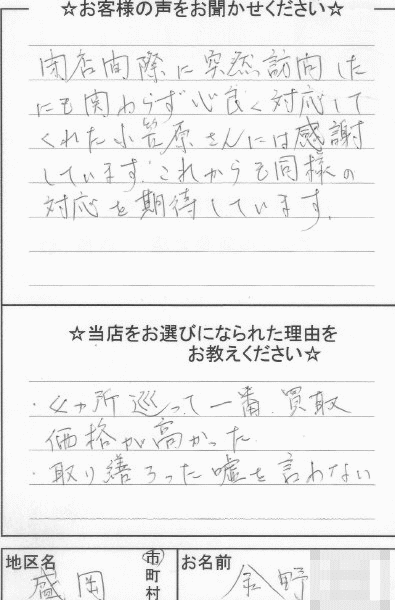 ☆お客様の声をお聞かせください☆
閉店間際に突然訪問した
にも関わらず心良く対応して
くれた小笠原さんには感謝
しています。これからも同様の
対応を期待しています。
☆当店をお選びになられた理由を
お教えください☆
・4ヵ所巡って一番買取
価格が高かった
・取り繕ろった嘘を言わない
地区名
盛岡
市
町
村
お名前
野